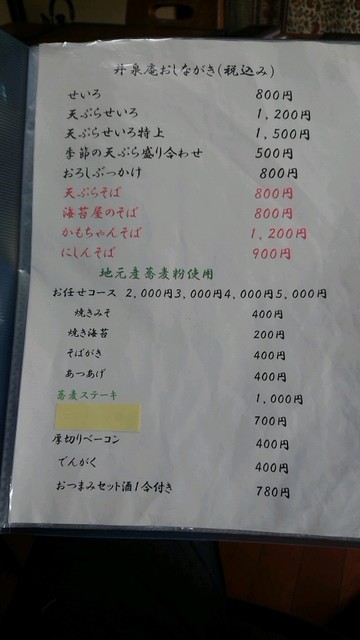 丹泉庵おしながき(税込み)
せいろ 800円
天ぷらせいろ 1,200円
天ぷらせいろ特上 1,500円
季節の天ぷら盛り合わせ 500円
おろしぶっかけ 800円
天ぷらそば 800円
海苔屋のそば 800円
かもちゃんそば 1,200円
にしんそば 900円
地元産蕎麦粉使用
お任せコース 2,000円3,000円4,000円5,000円
焼きみそ 400円
焼き海苔 200円
そばがき 400円
あつあげ 400円
蕎麦ステーキ 1,000円
700円
厚切りベーコン 400円
でんがく 400円
おつまみセット酒1合付き 780円